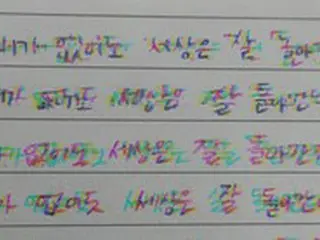 내가 없어도 세상은 잘 돌아
가 없어도 세상은 잘 돌아간다
가 없어도 세상은 잘 돌아간다
없어도 세상은 잘 돌아간